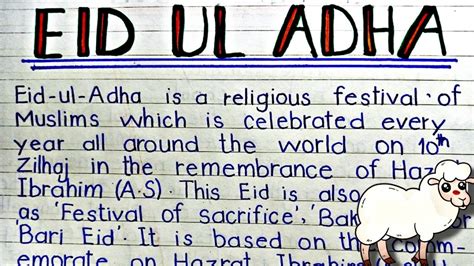 EID UL ADHA
Eid-ul-Adha is a religious festival of
Muslims which is celebrated every
year all around the world on 10th
Zilhaj in the remembrance of
Ibrahim (A.S). This Eid is also
as 'Festival of sacrifice', 'Bak
'Bari Eid'. It is based on the com-
emorate on Hazrat Ibrahim